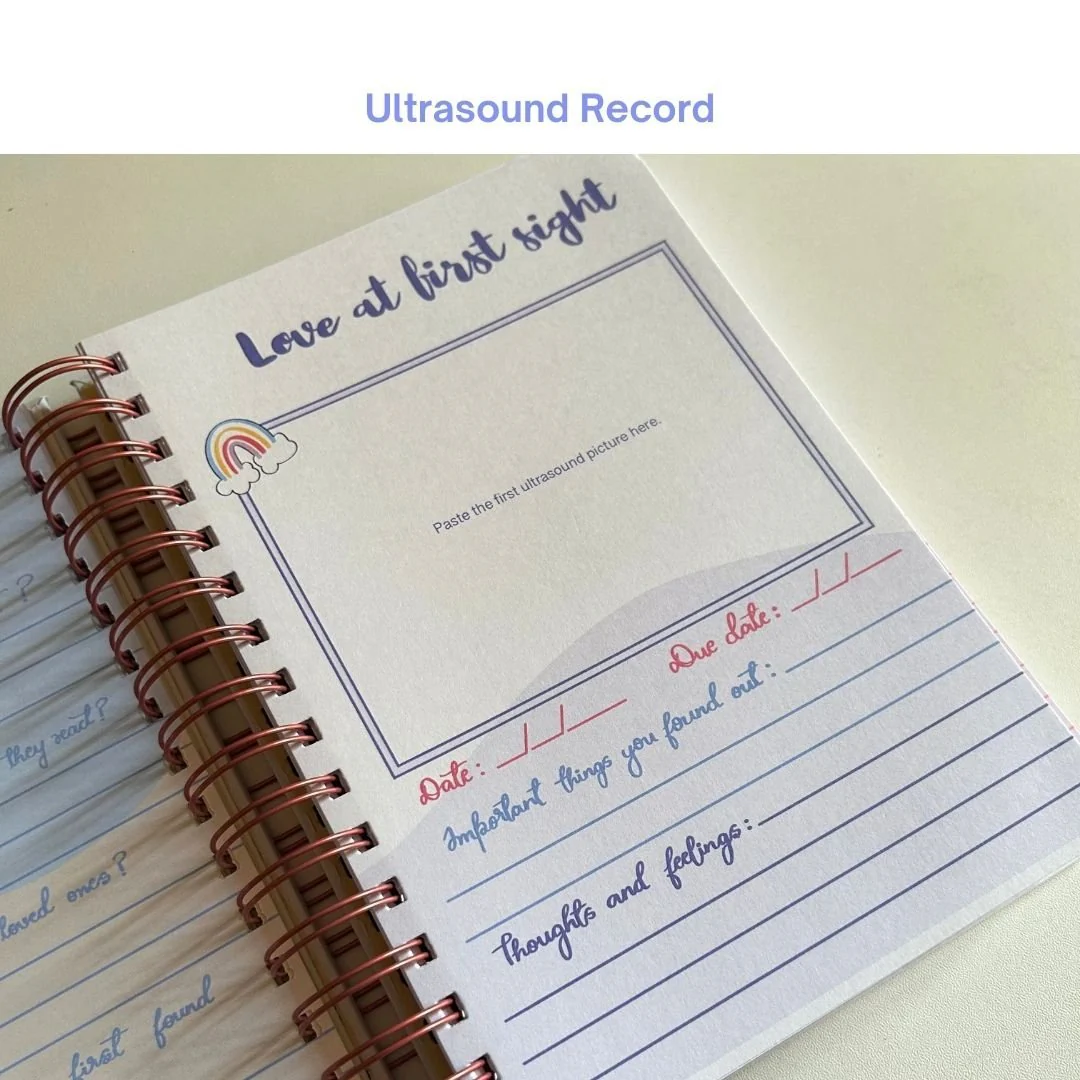 Ultrasound Record
Love at first sight
Paste the first ultrasound picture here.
Date: _/_/__ Due date: _/_/__
Important things you found out:
Thoughts and feelings:
?
they read?
loved ones?
first found